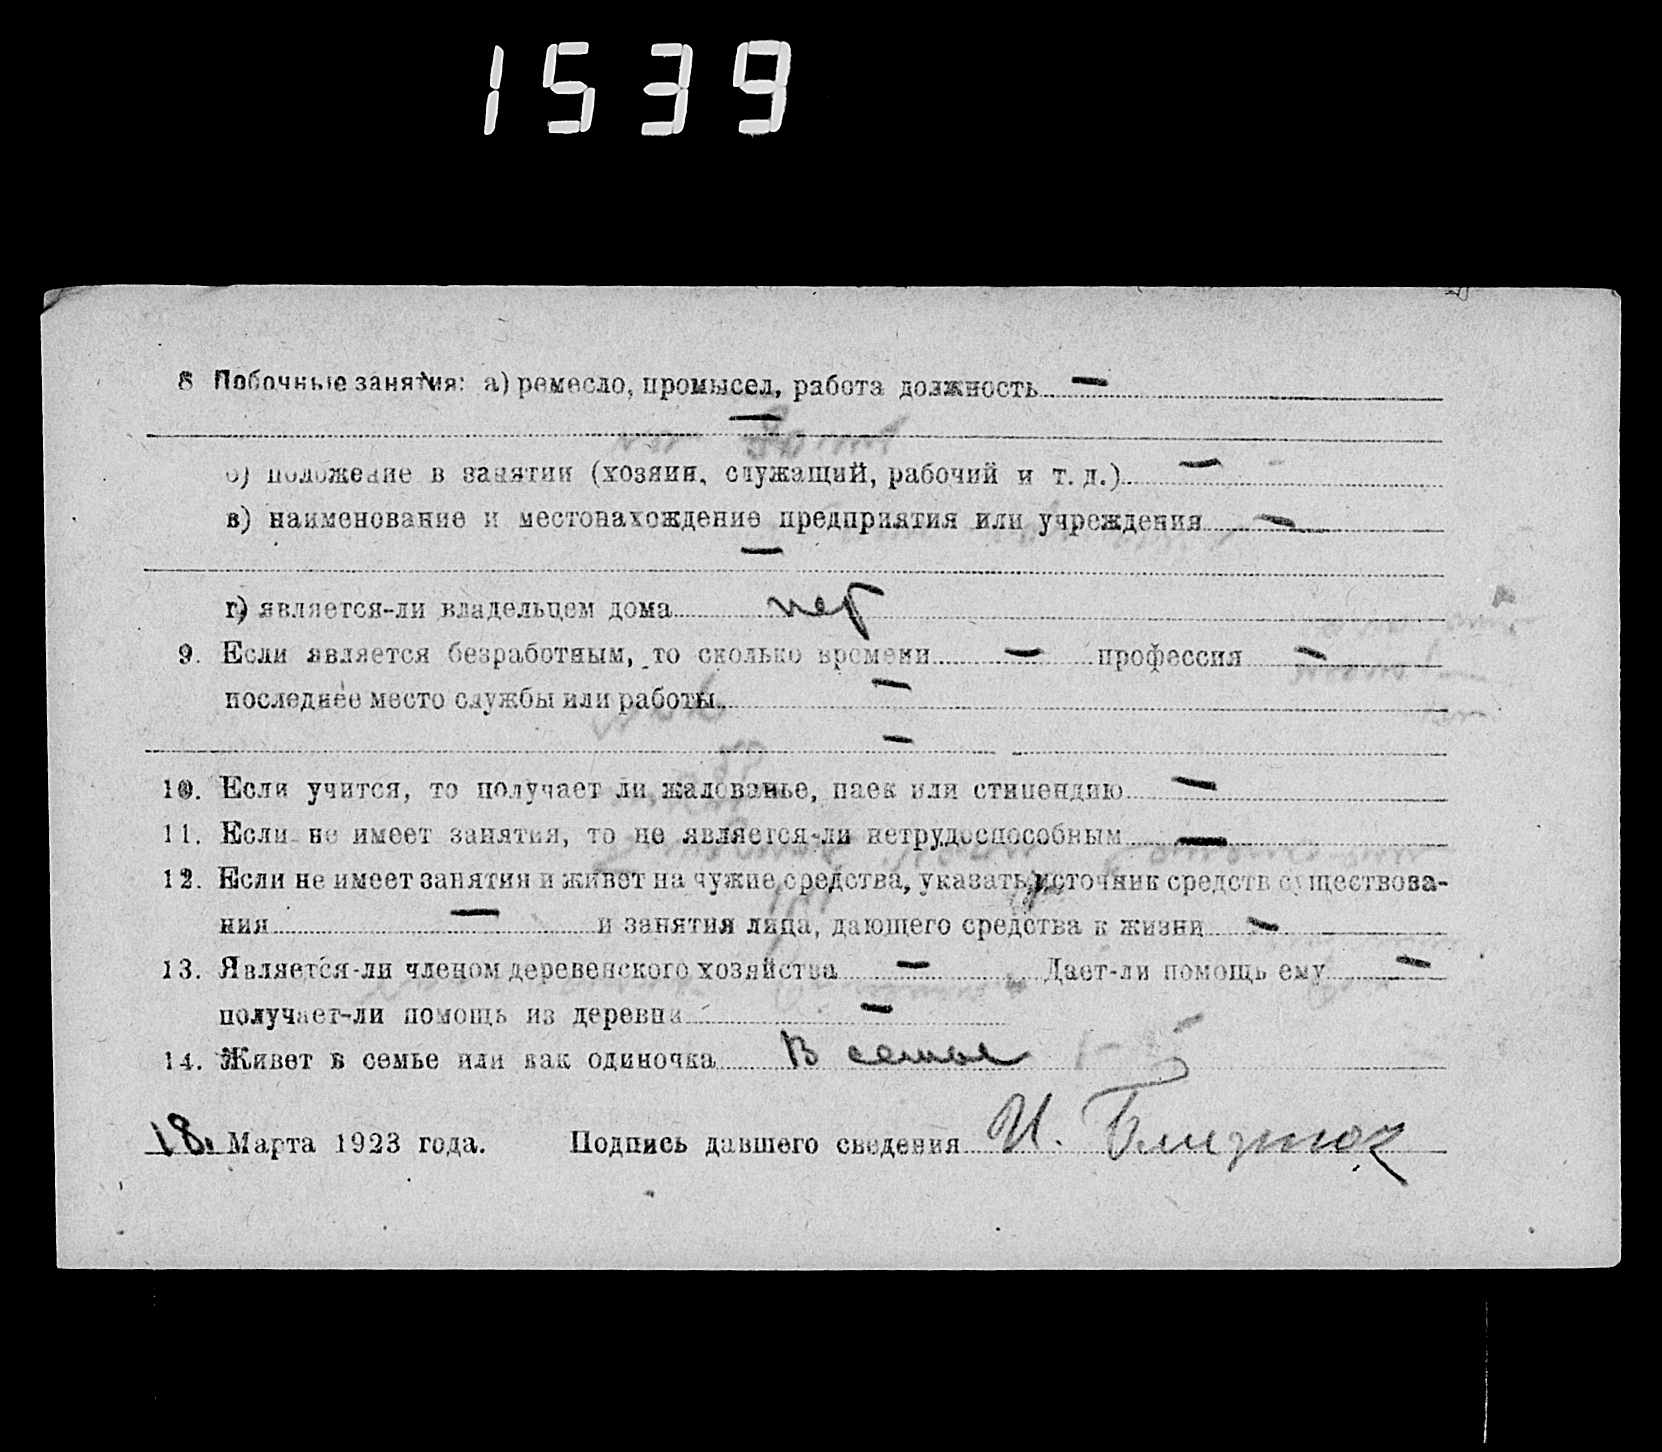 1539
8 Побочные занятия: а) ремесло, промысел, работа должность —
—
б) положение в занятии (хозяин, служащий, рабочий и т. д.) —
в) наименование и местонахождение предприятия или учреждения —
—
г) является-ли владельцем дома нет
9. Если является безработным, то сколько времени — профессия —
последнее место службы или работы —
—
10. Если учится, то получает ли жалованье, паек или стипендию —
11. Если не имеет занятия, то не является-ли нетрудоспособным —
12. Если не имеет занятия и живет на чужие средства, указать источник средств существова-
ния — и занятия лица, дающего средства к жизни —
13. Является-ли членом деревенского хозяйства — Дает-ли помощь ему —
получает-ли помощь из деревни —
14. Живет в семье или как одиночка В семье
18. Марта 1923 года. Подпись давшего сведения И.